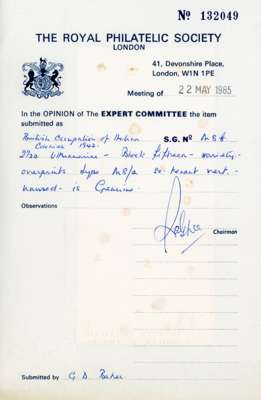 Nº 132049
THE ROYAL PHILATELIC SOCIETY
LONDON
41, Devonshire Place,
London, W1N 1PE
Meeting of 22 MAY 1985
In the OPINION of The EXPERT COMMITTEE the item
submitted as
British Occupation of Italian S.G. Nº
Colonies 1942.
2½d Ultramarine - Block fifteen - variety -
overprints type M5/a se-tenant vert.
unused - is Genuine.
Observations
Chairman
Submitted by G D